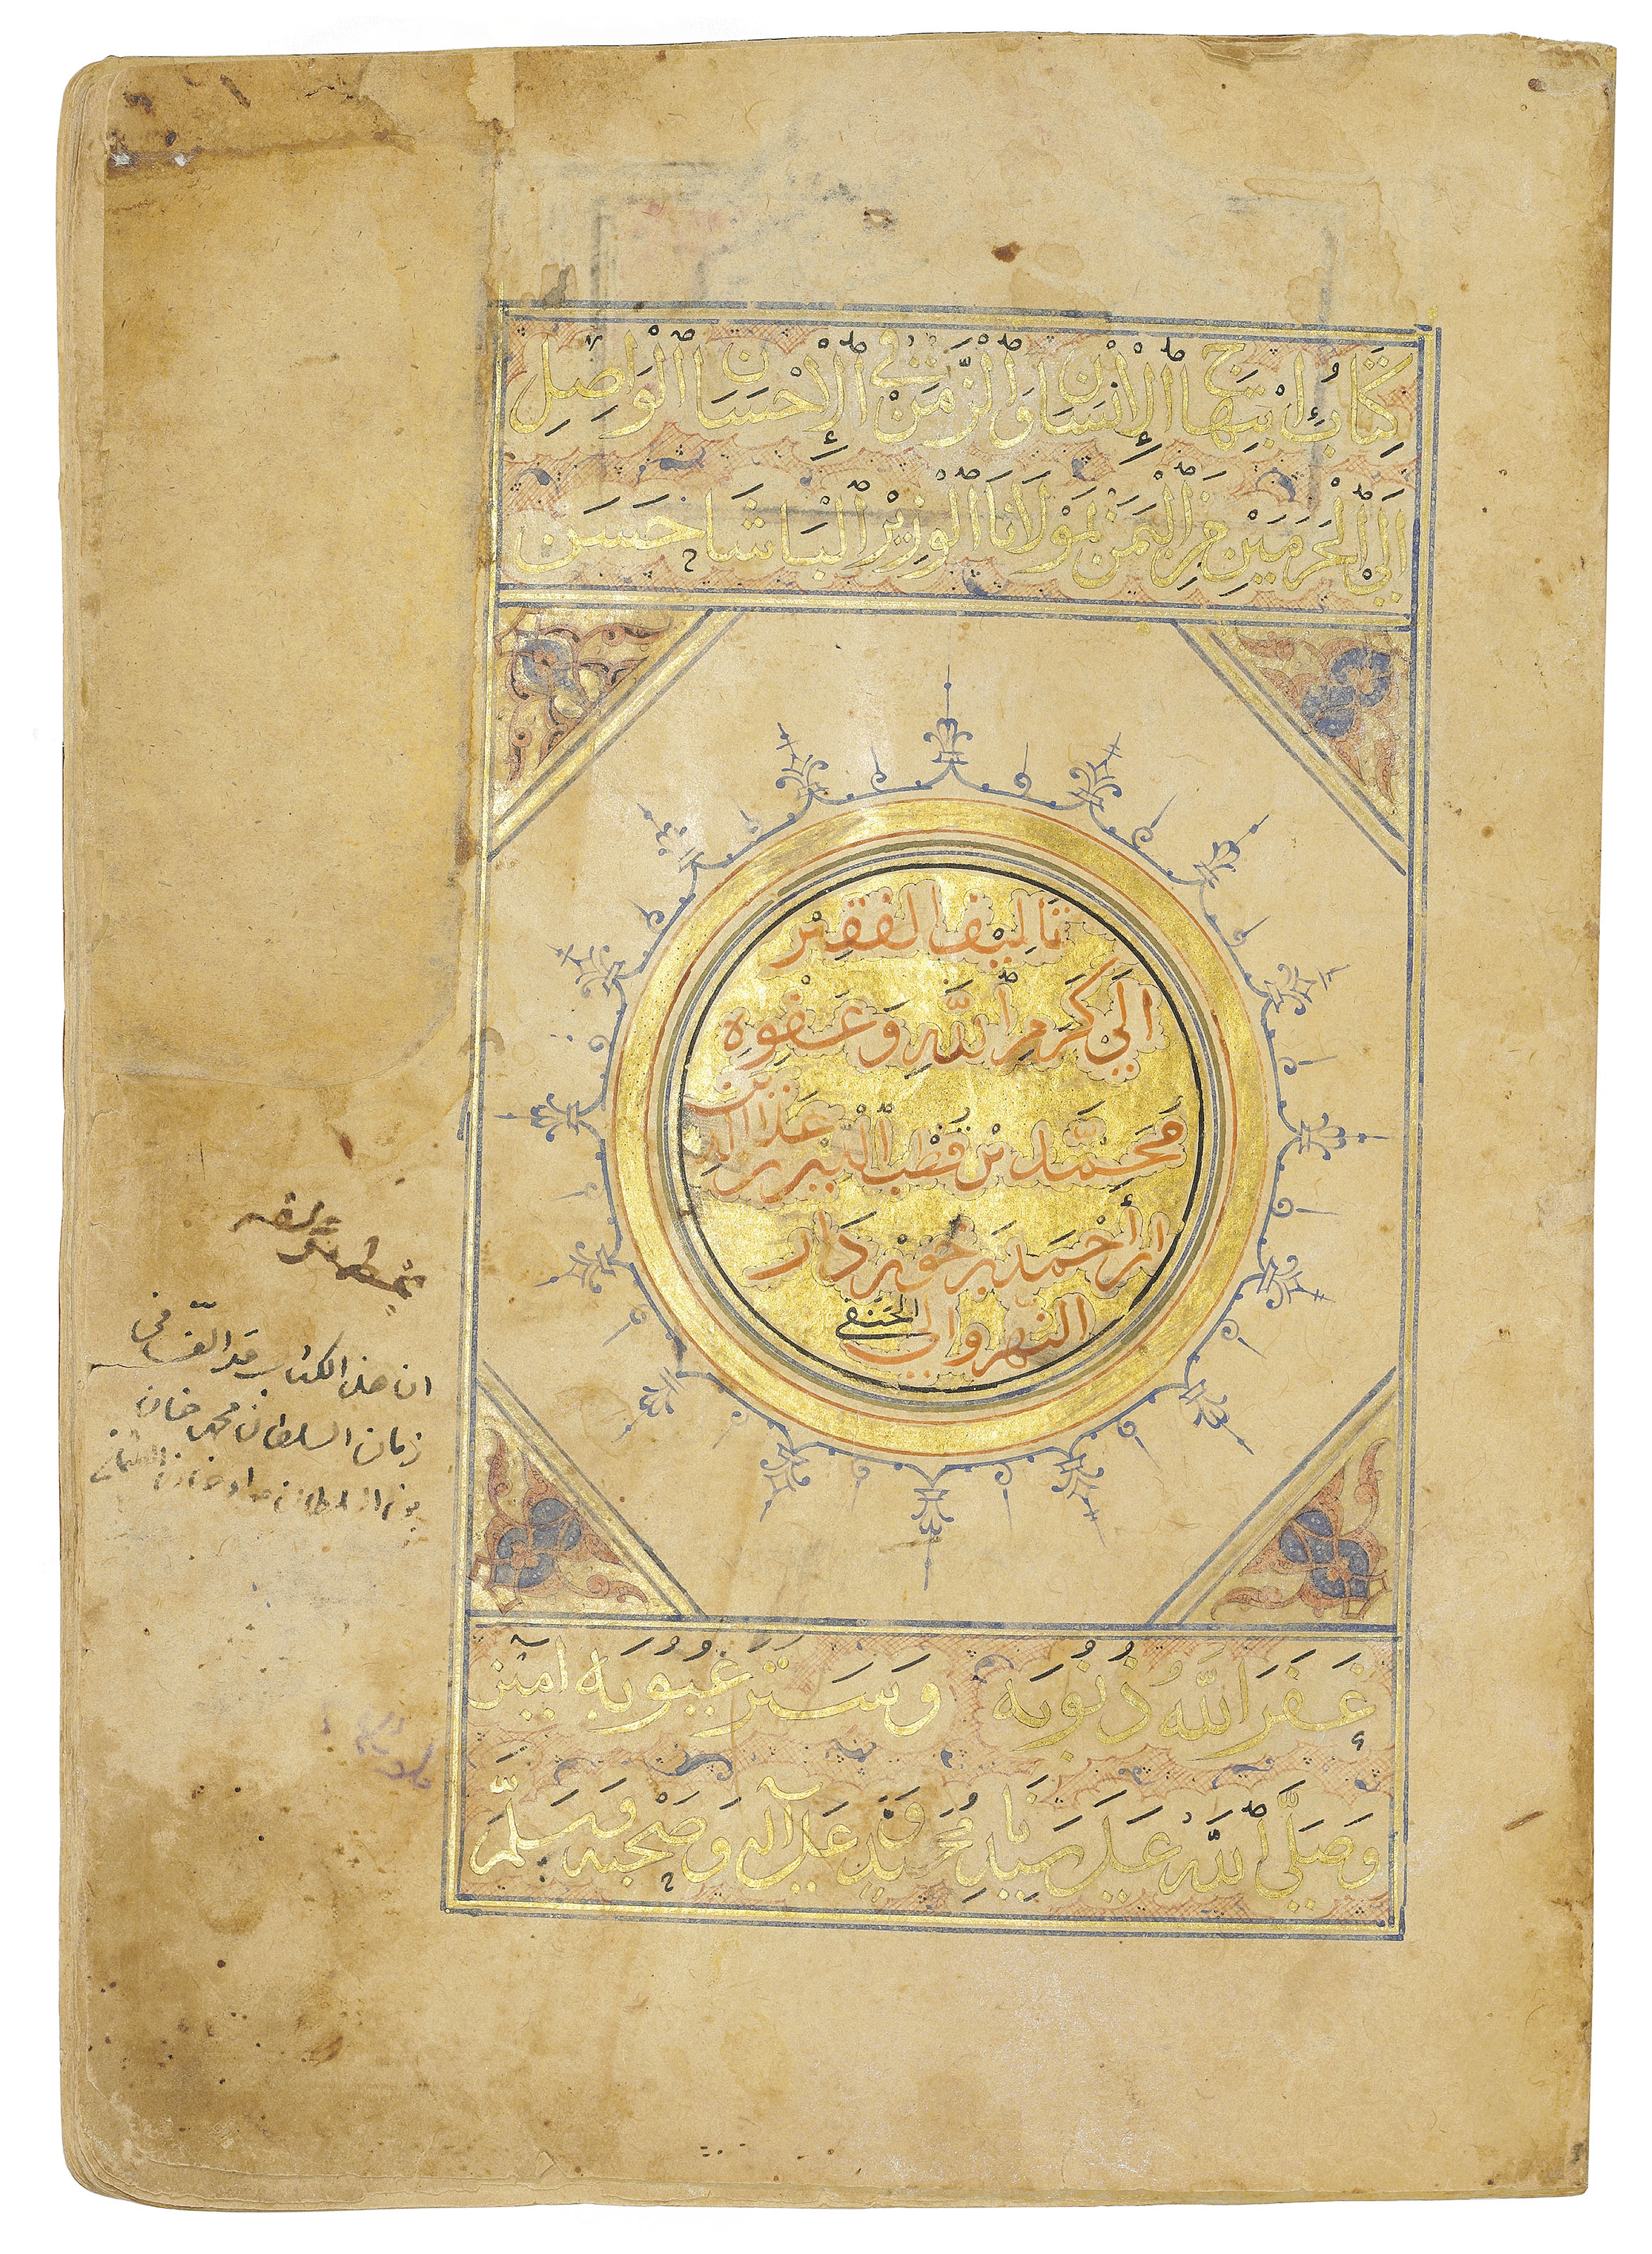 كِتَابُ اِبْتِهَاجِ الْإِنْسَانِ وَالزَّمَنْ فِي الْإِحْسَانِ الْوَاصِلِ
اِلَى الْحَرَمَيْنِ مِنَ الْيَمَنْ لِمَوْلَانَا الْوَزِيْرِ الْبَاشَا حَسَنْ
تَالِيْف الفَقِيْر
اِلَى كَرَمِ اللَّهِ وَعَفْوِهِ
مُحَمَّد بْن قُطْب الدّين
بن أَحْمَد
النهروالي الحنفي
غَفَرَ اللَّهُ ذُنُوبَه وَسَتَرَ عُيُوبَه اٰمِيْن
وَصَلَّى اللَّهُ عَلَى سَيِّدِنَا مُحَمَّدٍ وَعَلَى آلِهِ وَصَحْبِه وَسَلَّمَ
ان هذا الكتاب
زمان السلطان محمد خان